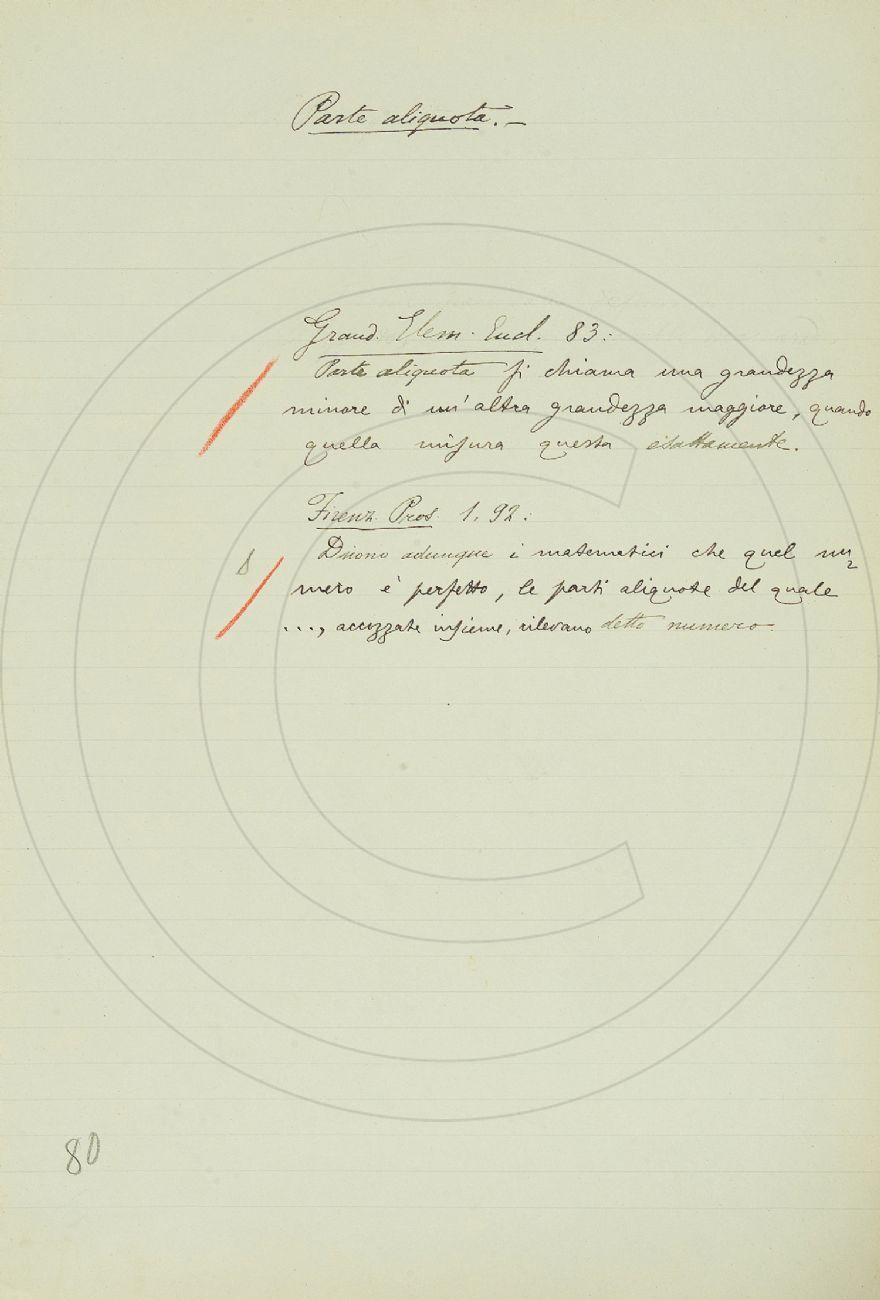 Parte aliquota. –
Grand. Elem. Eucl. 83:
Parte aliquota si chiama una grandezza
minore di un'altra grandezza maggiore, quando
quella misura questa esattamente.
Firenz. Pros. 1, 92:
Dicono adunque i matematici che quel nu=
mero è perfetto, le parti aliquote del quale
..., accozzate insieme, rilevano detto numero.
80